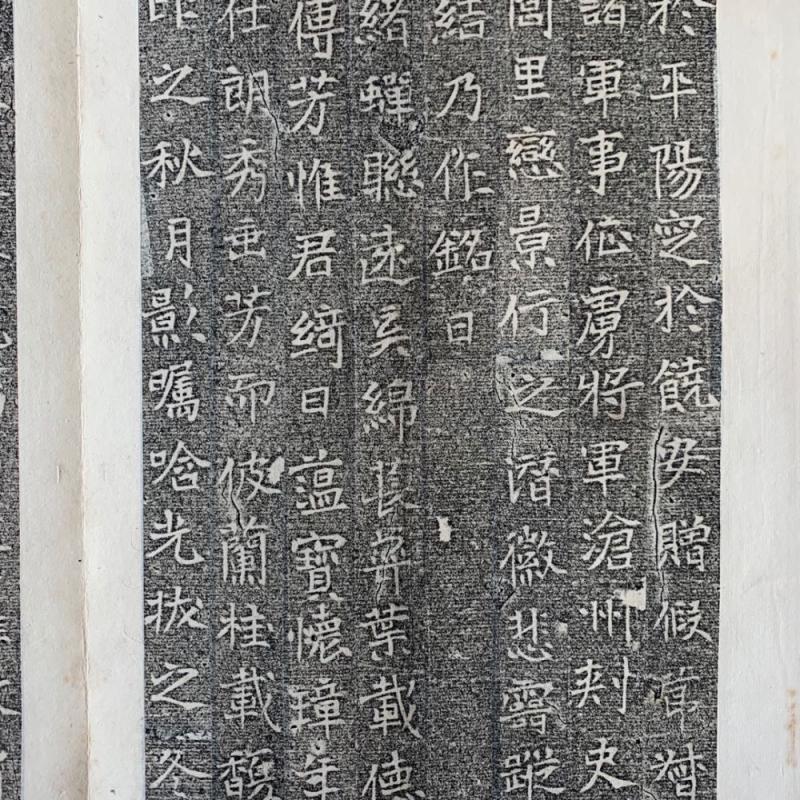 於平陽窆於饒安贈假節督
諸軍事征虜將軍滄州刺史
閭里戀景行之潛徽悲靈蹤
結乃作銘曰
緒蟬聯遠矣綿長弈葉載德
傳芳惟君綺日蘊寶懷璋年
仕朗秀垂芳而彼蘭桂載馥
昨之秋月影矚哈光皎之冬